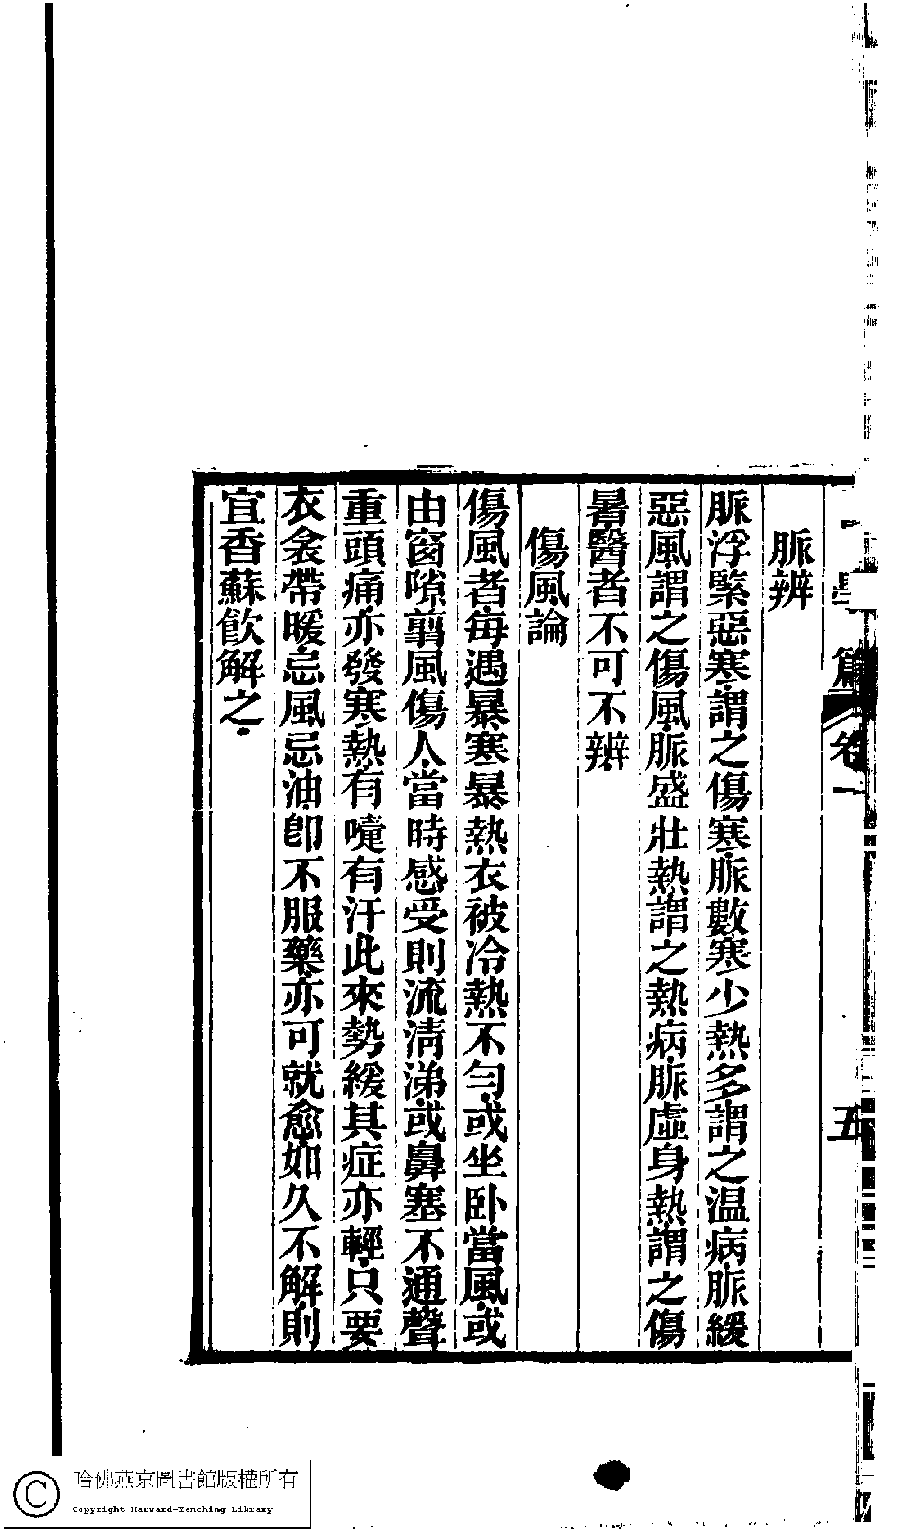 脈辨
脈浮緊惡寒謂之傷寒脈數寒少熱多謂之温病脈緩
惡風謂之傷風脈盛壯熱謂之熱病脈虛身熱謂之傷
暑醫者不可不辨
傷風論
傷風者每遇暴寒暴熱衣被冷熱不勻或坐卧當風或
由窗隙翦風傷人當時感受則流清涕或鼻塞不通聲
重頭痛亦發寒熱有嚏有汗此來勢緩其症亦輕只要
衣衾帶暖忌風忌油卽不服藥亦可就愈如久不解則
宜香蘇飲解之
篇
卷一
五
哈佛燕京圖書館版權所有
Copyright Harvard-Yenching Library